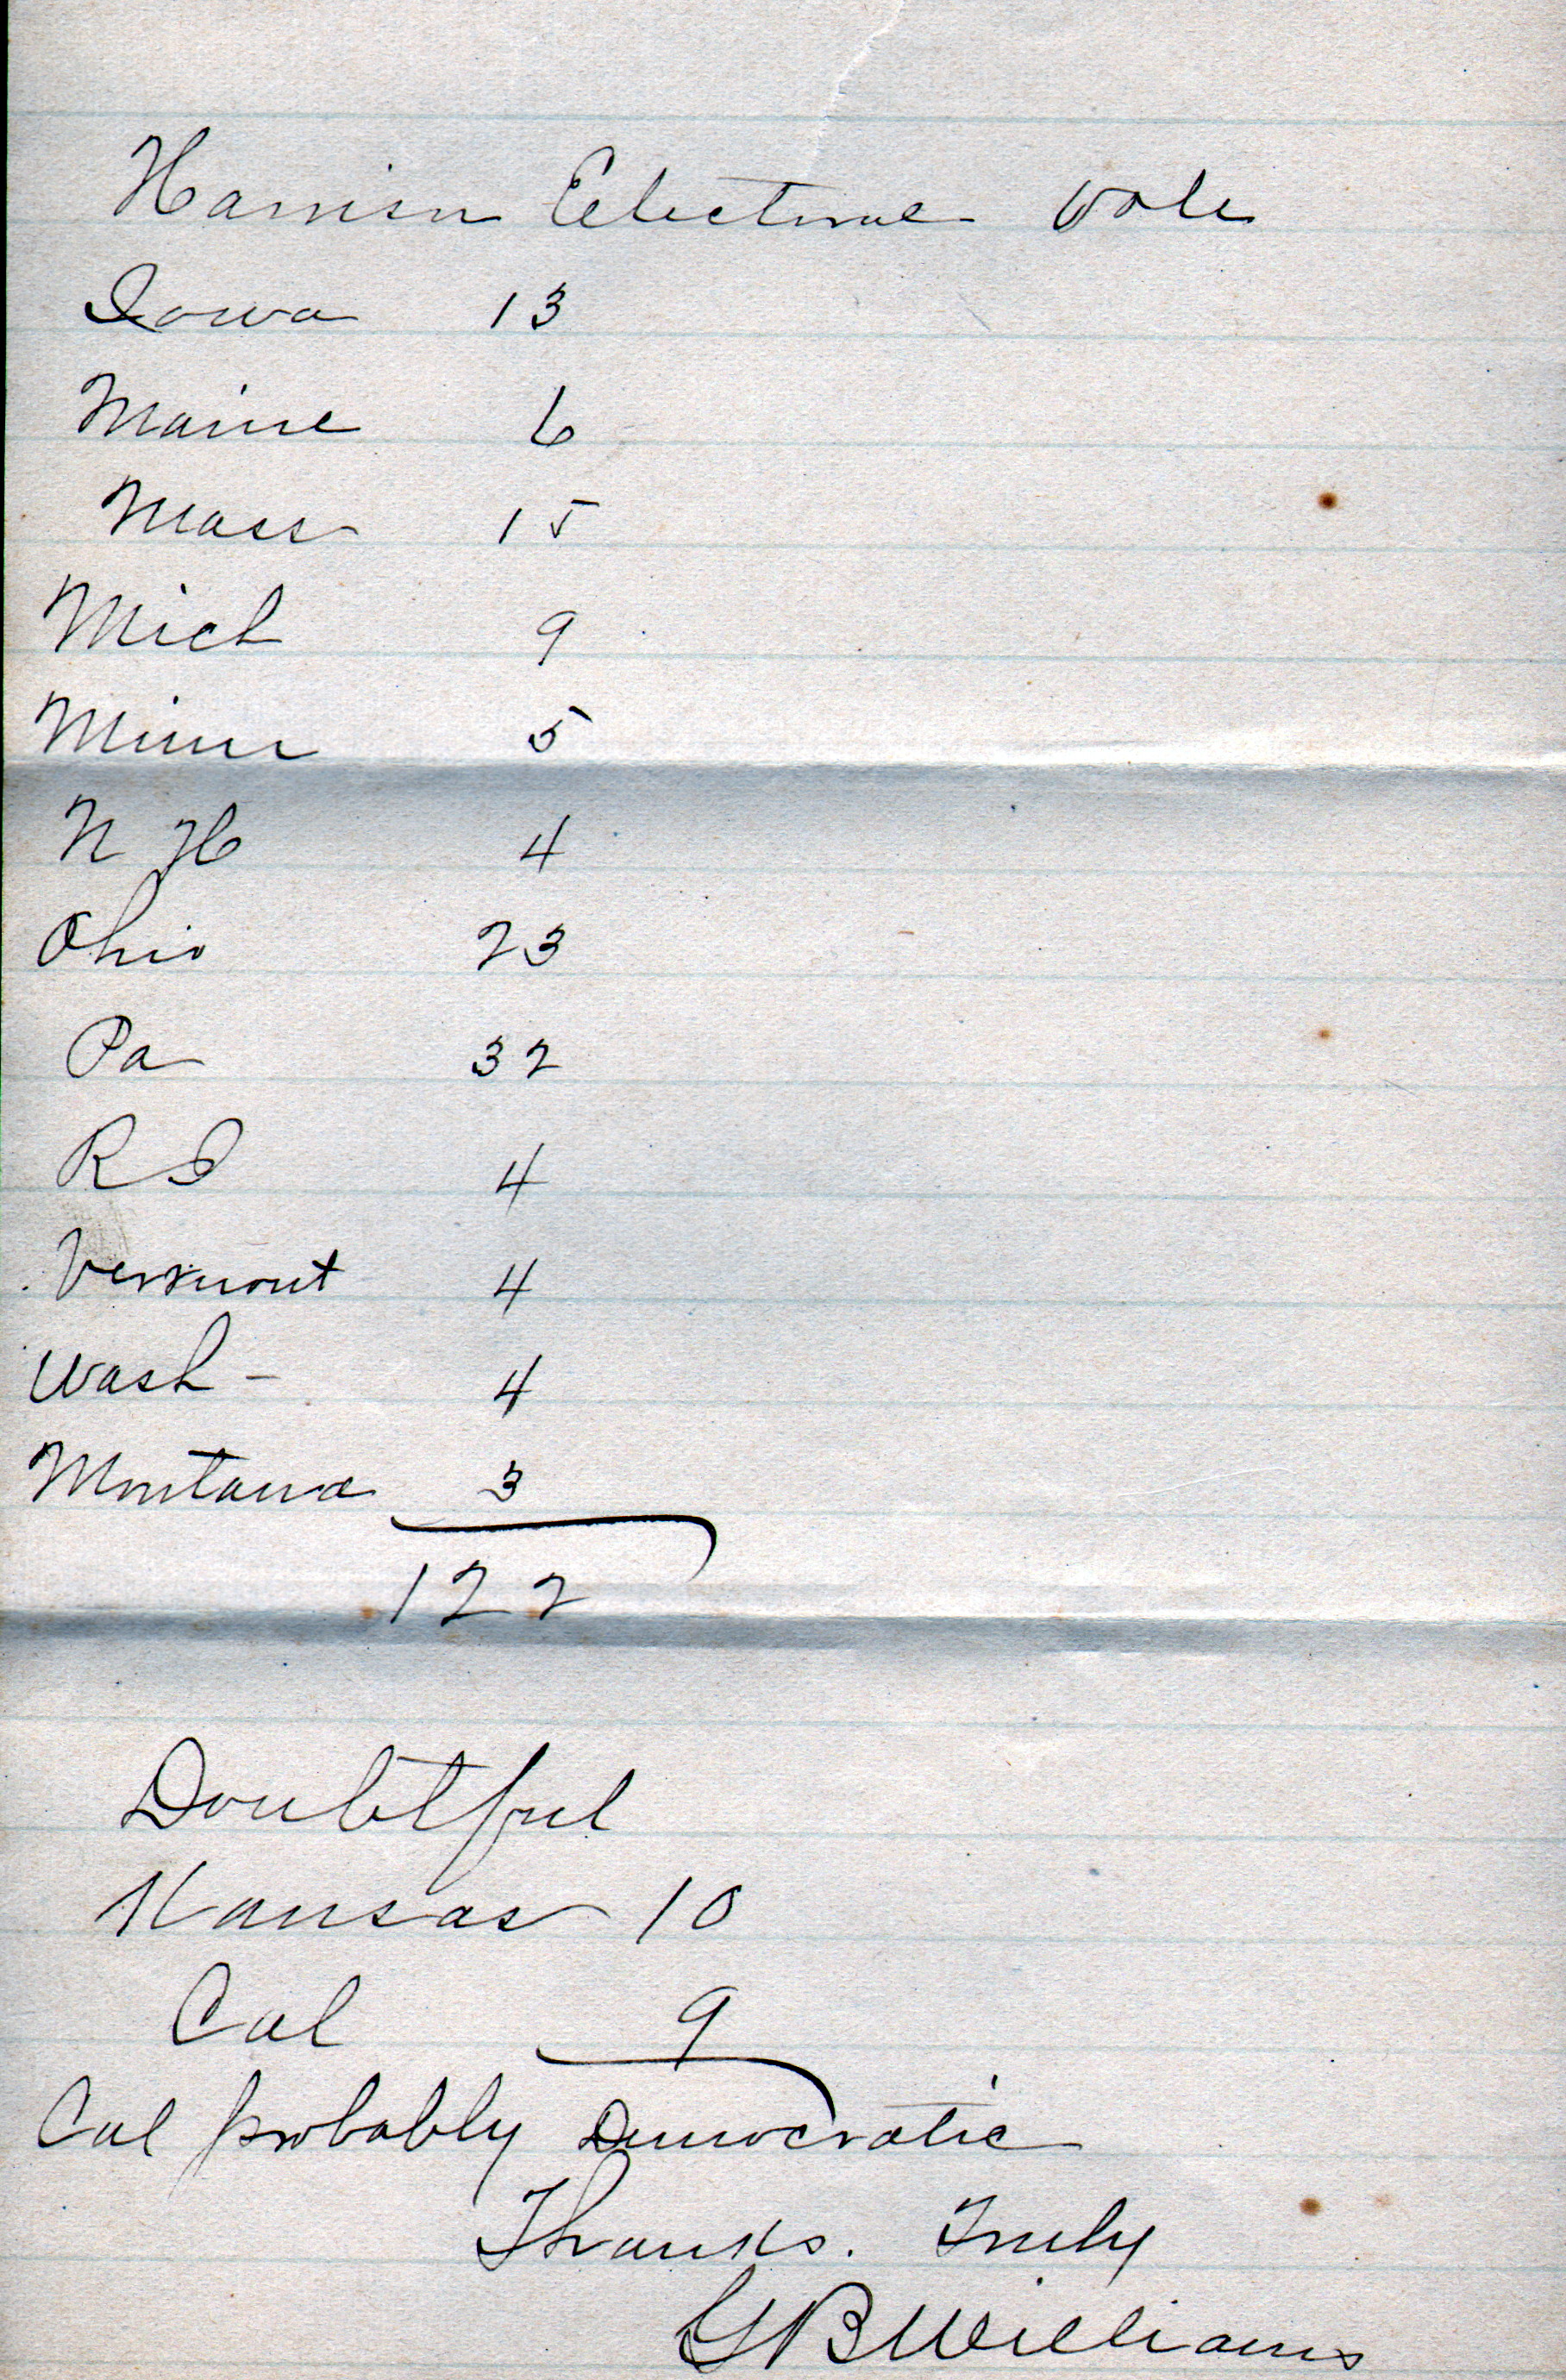 Harrison Electoral Vote
Iowa 13
Maine 6
Mass 15
Mich 9
Minn 5
N H 4
Ohio 23
Pa 32
R I 4
Vermont 4
Wash - 4
Montana 3
122
Doubtful
Kansas 10
Cal 9
Cal probably Democratic
Thanks. Truly
GB Williams